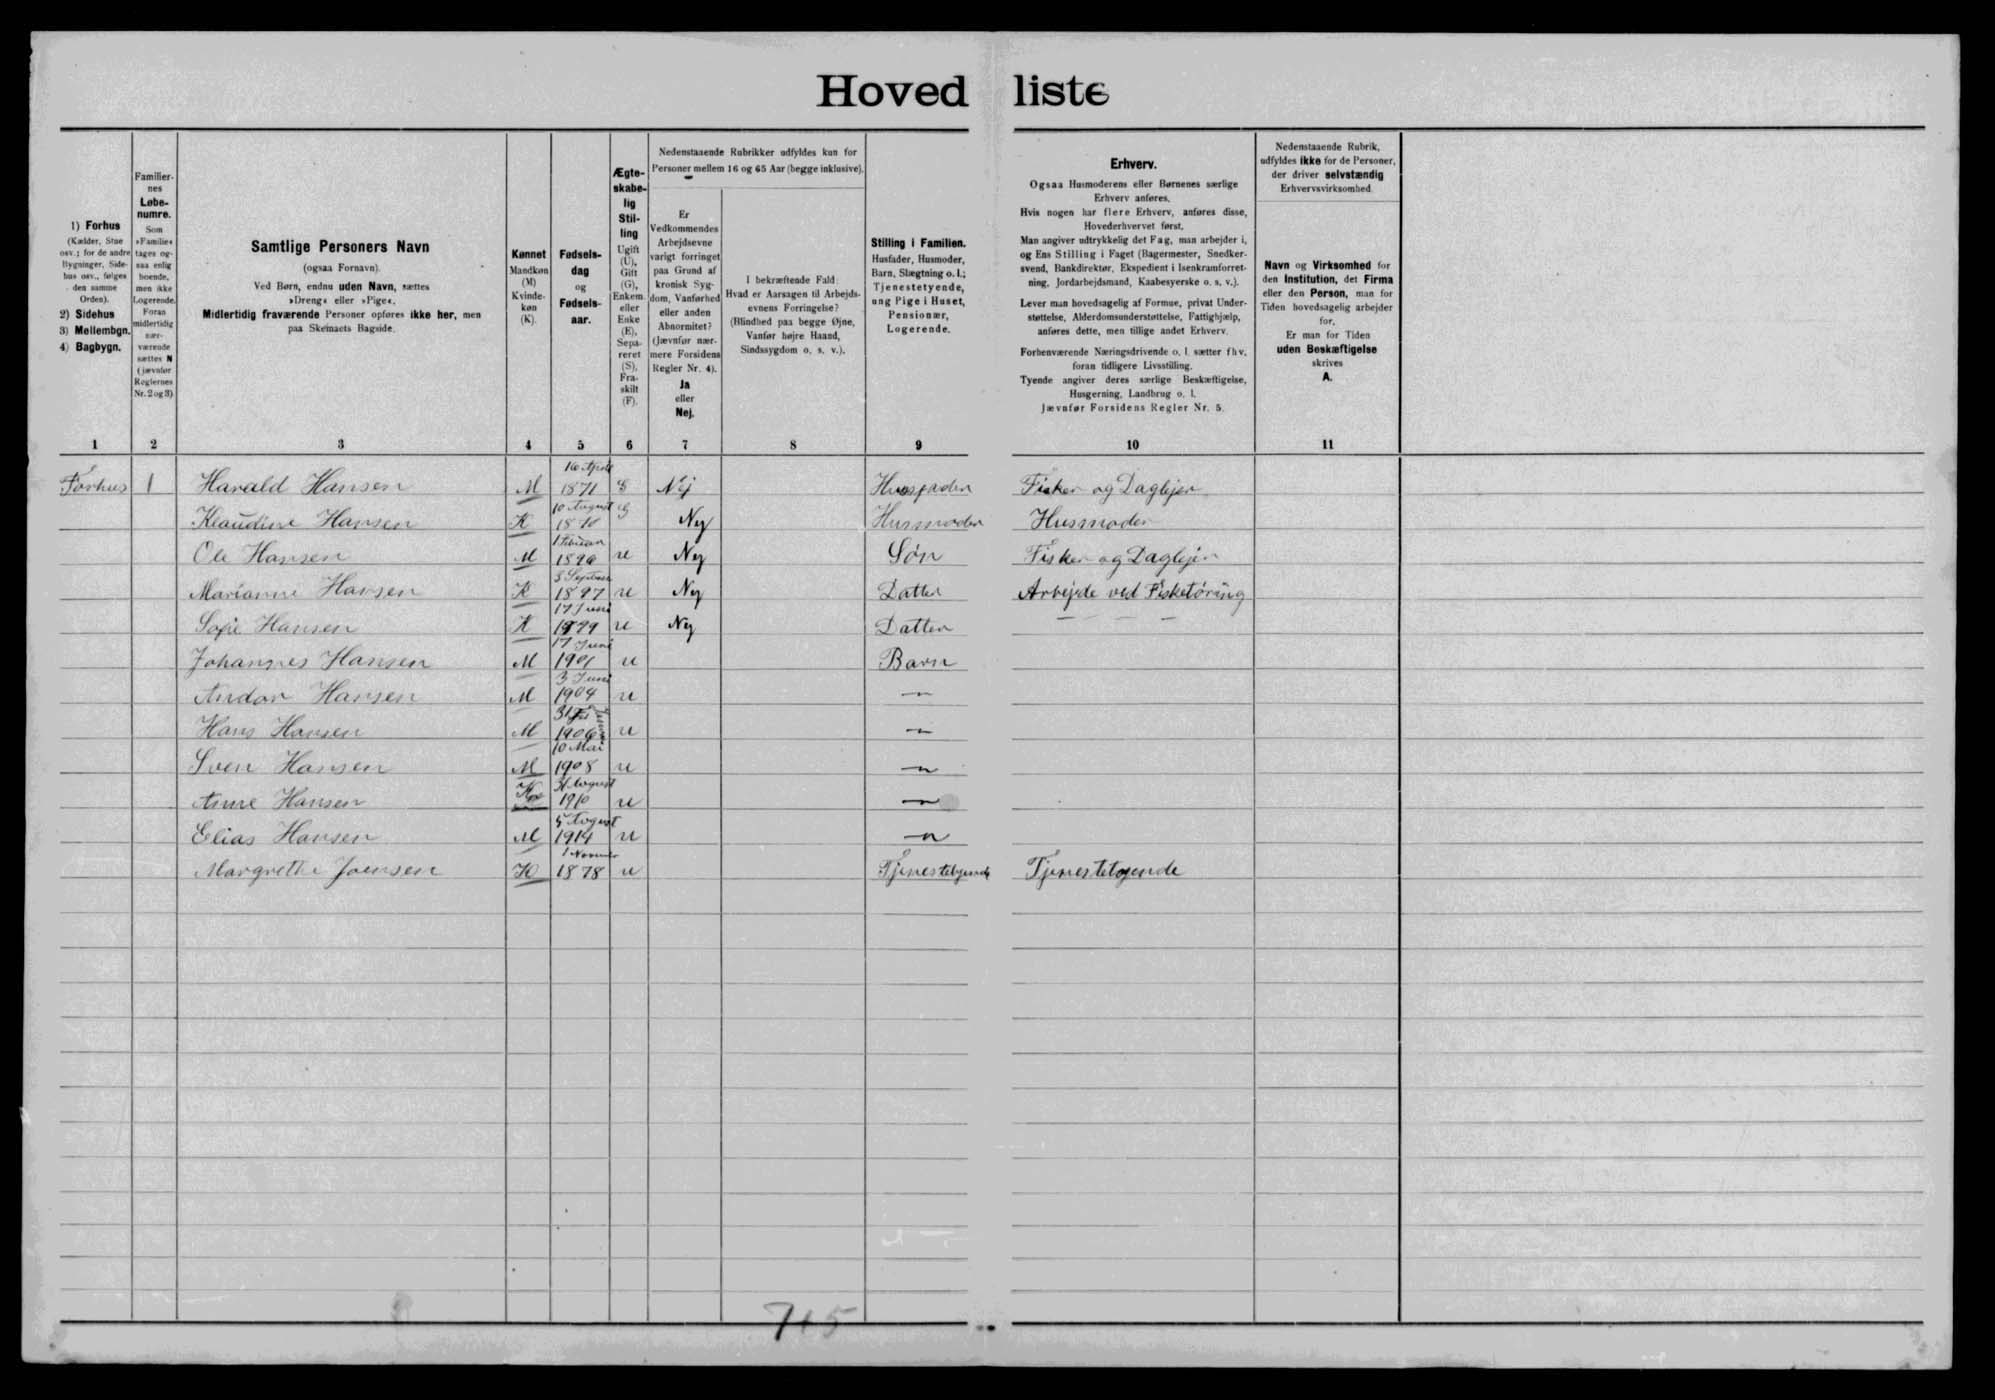 Hovedliste
1) Forhus
(Kælder, Stue
osv.; for de andre
Bygninger, Side-
hus osv., følges
den samme
Orden).
2) Sidehus
3) Mellembgn.
4) Bagbygn.
Familier-
nes
Løbe-
numre.
Som
»Familie«
tages og-
saa enlig
boende,
men ikke
Logerende.
Foran
midlertidig
nær-
værende
sættes N
(jævnfør
Reglernes
Nr. 2 og 3)
Samtlige Personers Navn
(ogsaa Fornavn).
Ved Børn, endnu uden Navn, sættes
»Dreng« eller »Pige«.
Midlertidig fraværende Personer opføres ikke her, men
paa Skemaets Bagside.
Kønnet
Mandkøn
(M)
Kvinde-
køn
(K).
Fødsels-
dag
og
Fødsels-
aar.
Ægte-
skabe-
lig
Stil-
ling
Ugift
(U),
Gift
(G),
Enkem.
eller
Enke
(E),
Sepa-
reret
(S),
Fra-
skilt
(F).
Nedenstaaende Rubrikker udfyldes kun for
Personer mellem 16 og 65 Aar (begge inklusive).
Er
Vedkommendes
Arbejdsevne
varigt forringet
paa Grund af
kronisk Syg-
dom, Vanførhed
eller anden
Abnormitet?
(Jævnfør nær-
mere Forsidens
Regler Nr. 4).
Ja
eller
Nej.
I bekræftende Fald:
Hvad er Aarsagen til Arbejds-
evnens Forringelse?
(Blindhed paa begge Øjne,
Vanfør højre Haand,
Sindssygdom o. s. v.).
Stilling i Familien.
Husfader, Husmoder,
Barn, Slægtning o. l.;
Tjenestetyende,
ung Pige i Huset,
Pensionær,
Logerende.
Erhverv.
Ogsaa Husmoderens eller Børnenes særlige
Erhverv anføres.
Hvis nogen har flere Erhverv, anføres disse,
Hovederhvervet først.
Man angiver udtrykkelig det Fag, man arbejder i,
og Ens Stilling i Faget (Bagermester, Snedker-
svend, Bankdirektør, Ekspedient i Isenkramforret-
ning, Jordarbejdsmand, Kaabesyerske o. s. v.).
Lever man hovedsagelig af Formue, privat Under-
støttelse, Alderdomsunderstøttelse, Fattighjælp,
anføres dette, men tillige andet Erhverv.
Forhenværende Næringsdrivende o. l. sætter fhv.
foran tidligere Livsstilling.
Tyende angiver deres særlige Beskæftigelse,
Husgerning, Landbrug o. l.
Jævnfør Forsidens Regler Nr. 5.
Nedenstaaende Rubrik,
udfyldes ikke for de Personer,
der driver selvstændig
Erhvervsvirksomhed.
Navn og Virksomhed for
den Institution, det Firma
eller den Person, man for
Tiden hovedsagelig arbejder
for.
Er man for Tiden
uden Beskæftigelse
skrives
A.
1 2 3 4 5 6 7 8 9 10 11
Forhus 1 Harald Hansen M 16 April 1871 G Nej Husfader Fisker og Daglejer
Klaudine Hansen K 10 August 1870 G Nej Husmoder Husmoder
Ole Hansen M 1 Februar 1896 u Nej Søn Fisker og Daglejer
Marianne Hansen K 1897 u Nej Datter Arbejde ved Fisketøring
Sofie Hansen K 17 Juni 1899 u Nej Datter — — — —
Johannes Hansen M 17 Juni 1901 u Barn
Andor Hansen M 3 Juni 1904 u — " —
Hans Hansen M 31 1906 u — " —
Sven Hansen M 10 Mai 1908 u — " —
Anne Hansen K 31 August 1910 u — " —
Elias Hansen M 5 August 1914 u — " —
Margrethe Joensen K 1 November 1878 u Tjenestetyende Tjenestetyende
745